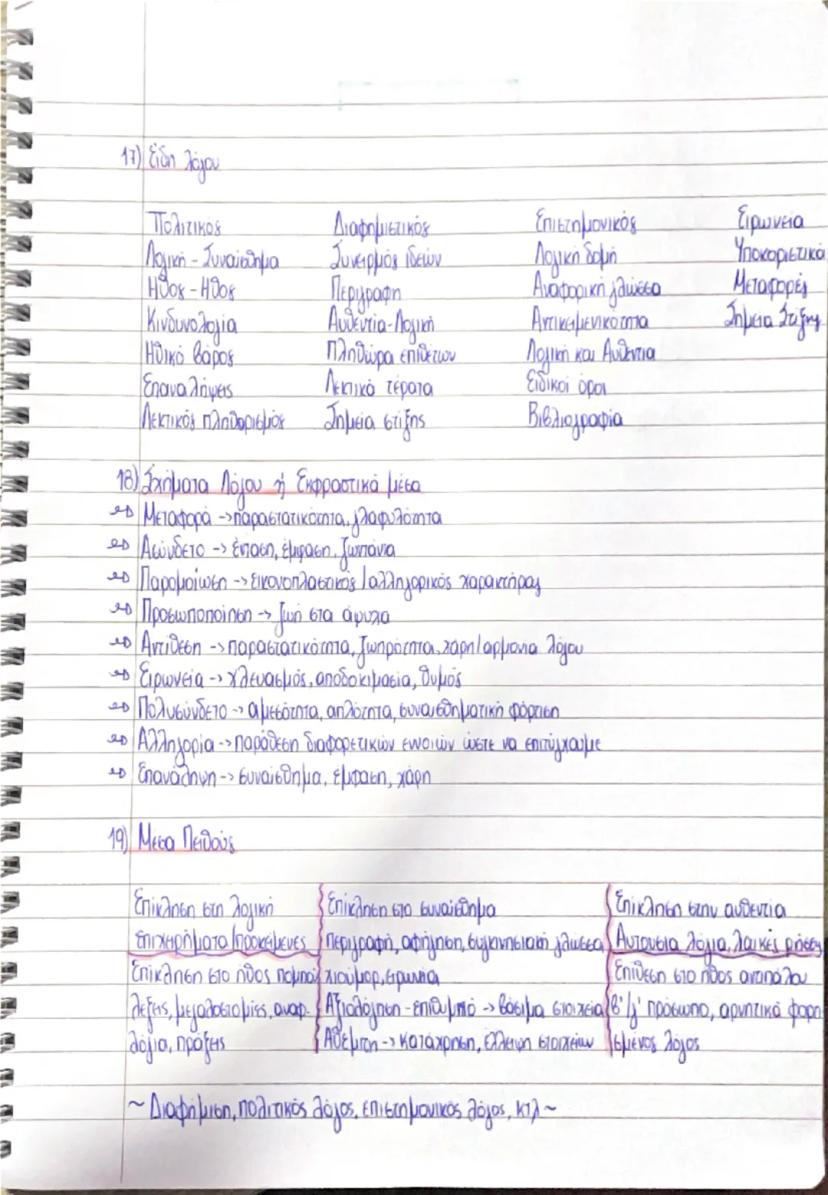 17) Είδη λόγου
Πολιτικός Διαφημιστικός Επιστημονικός Ειρωνεία
Λογική - Συναίσθημα Συνειρμός ιδεών Λογική δομή Υποκοριστικά
Ηθος - Ηθος Περιγραφή Αναφορική γλώσσα Μεταφορές
Κινδυνολογία Αυθεντία - Λογική Αντικειμενικότητα Σημεία Στίξης
Ηθικό βάρος Πληθώρα επιθέτων Λογική και Αυθεντία
Επαναλήψεις Λεκτικά τέρατα Ειδικοί όροι
Λεκτικός πληθορισμός Σημεία στίξης Βιβλιογραφία
18) Σχήματα Λόγου ή Εκφραστικά μέσα
Μεταφορά -> παραστατικότητα, γλαφυλότητα
Ασύνδετο -> ένταση, έμφαση, ζωντάνια
Παρομοίωση -> εικονοπλαστικός / αλληγορικός χαρακτήρας
Προσωποποίηση -> ζωή στα άψυχα
Αντίθεση -> παραστατικότητα, ζωηρότητα, χάρη/αρμονία λόγου
Ειρωνεία -> χλευασμός, αποδοκιμασία, θυμός
Πολυσύνδετο -> αμεσότητα, απλότητα, συναισθηματική φόρτιση
Αλληγορία -> παράθεση διαφορετικών εννοιών ώστε να επιτύχουμε
Επανάληψη -> συναίσθημα, έμφαση, χάρη
19) Μέσα Πειθούς
Επίκληση στη λογική Επίκληση στο συναίσθημα Επίκληση στην αυθεντία
Επιχειρήματα/προκείμενες Περιγραφή, αφήγηση, συγκινησιακή γλώσσα Αυτούσια λόγια, λαικές ρήσεις
Επίκληση στο ήθος πομπού χιούμορ, ειρωνια Επίθεση στο ήθος αντιπάλου
λέξεις, μεγαλοστομίες, αναφ. Αξιολόγηση - επιθυμητό -> βάσιμα στοιχεία β'/γ' πρόσωπο, αρνητικά φορτι
λόγια, πράξεις Αθέμιτη -> κατάχρηση, έλλειψη στοιχείων σμένος λόγος
~ Διαφήμιση, πολιτικός λόγος, επιστημονικός λόγος, κτλ ~